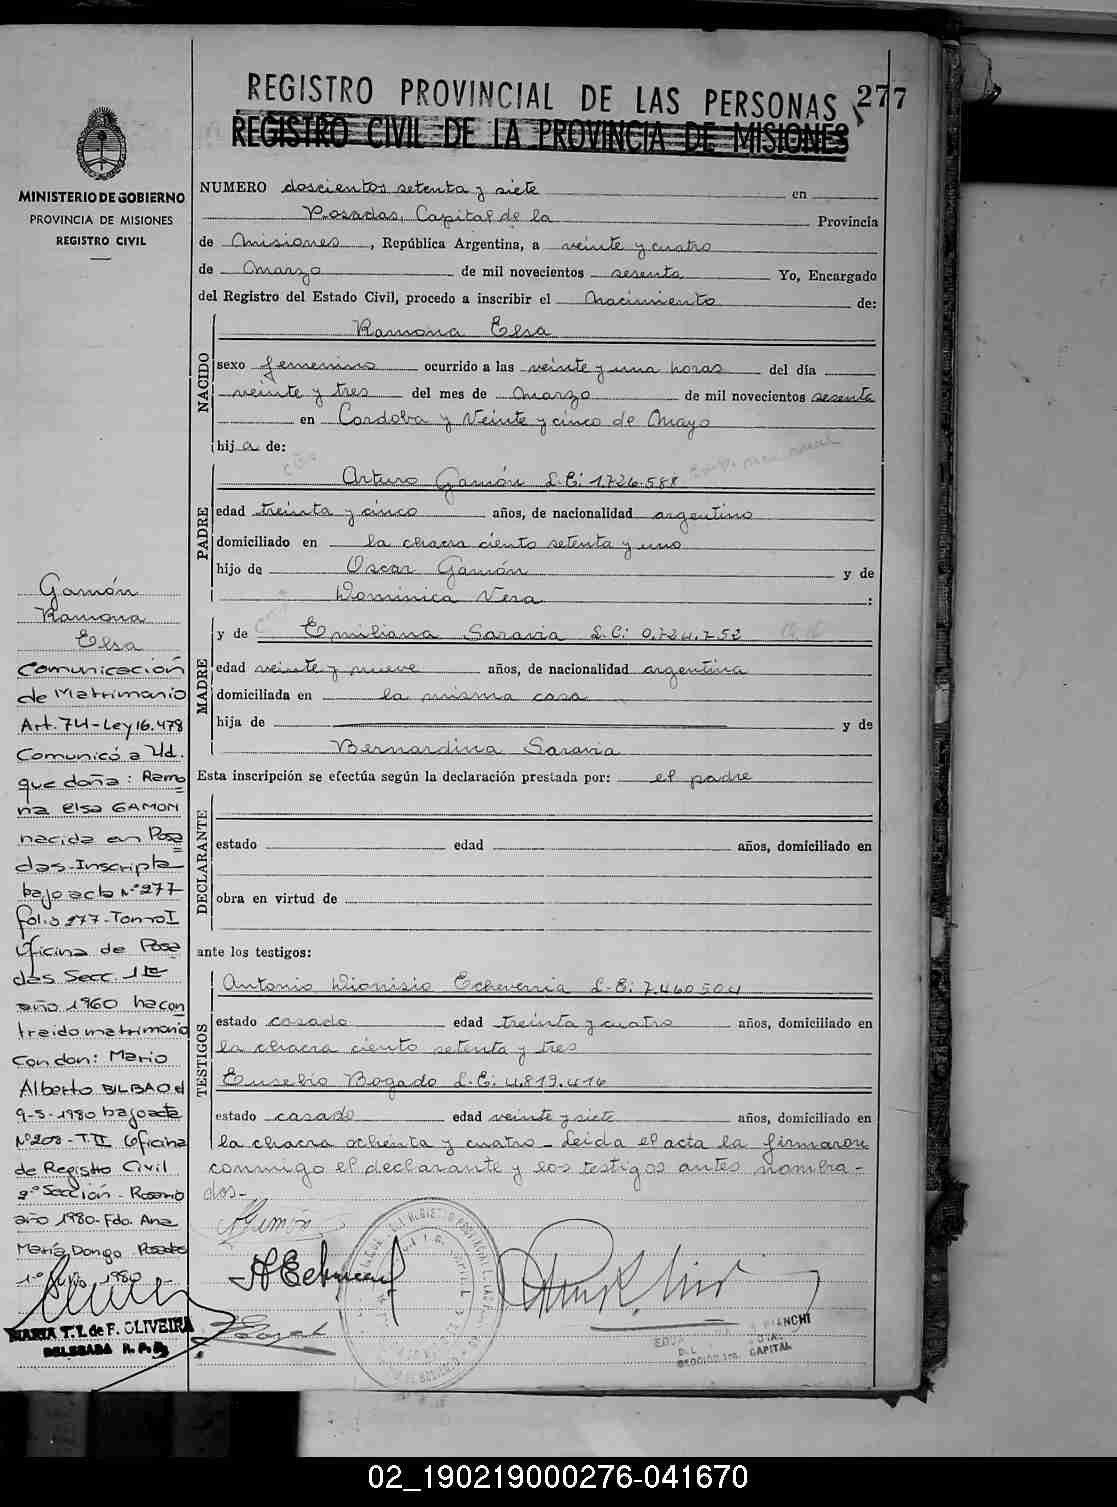 REGISTRO PROVINCIAL DE LAS PERSONAS 277
REGISTRO CIVIL DE LA PROVINCIA DE MISIONES
MINISTERIO DE GOBIERNO
PROVINCIA DE MISIONES
REGISTRO CIVIL
NUMERO doscientos setenta y siete en
Posadas, Capital de la Provincia
de Misiones, República Argentina, a veinte y cuatro
de Marzo de mil novecientos sesenta Yo, Encargado
del Registro del Estado Civil, procedo a inscribir el Nacimiento de:
NACIDO
Ramona Elsa
sexo femenino ocurrido a las veinte y una horas del día
veinte y tres del mes de Marzo de mil novecientos sesenta
en Cordoba y Veinte y cinco de Mayo
hija de:
PADRE
Arturo Gamón L.E: 1.726.588
edad treinta y cinco años, de nacionalidad argentino
domiciliado en la chacra ciento setenta y uno
hijo de Oscar Gamón y de
Dominica Vera :
MADRE
y de Emiliana Saravia L.C: 0.724.752
edad veinte y nueve años, de nacionalidad argentina
domiciliada en la misma casa
hija de y de
Bernardina Saravia
Esta inscripción se efectúa según la declaración prestada por: el padre
DECLARANTE
estado edad años, domiciliado en
obra en virtud de
ante los testigos:
TESTIGOS
Antonio Dionisio Echeverria L.E: 7.460504
estado casado edad treinta y cuatro años, domiciliado en
la chacra ciento setenta y tres
Eusebio Bogado L.E: 4.819.416
estado casado edad veinte y siete años, domiciliado en
la chacra ochenta y cuatro - Leida el acta la firmaron
conmigo el declarante y los testigos antes nombra-
dos-
Gamón
Ramona
Elsa
Comunicación
de Matrimonio
Art. 74-Ley 16.478
Comunicó a Ud.
que doña: Ramo
na Elsa GAMON
nacida en Posa
das-Inscripta
bajo acta N° 277
folio 277-Tomo I
Oficina de Posa
das Secc. 1ra
año 1960 ha con
traido matrimonio
con don: Mario
Alberto BILBAO el
9-5-1980 bajo acta
N° 203-T.II Oficina
de Registro Civil
2° Sección-Rosario
año 1980-Fdo. Ana
María Dongo Posadas
1° 1980
MARIA T. I. de F. OLIVEIRA
DELEGADA R. P. P.
CAPITAL
02_190219000276-041670